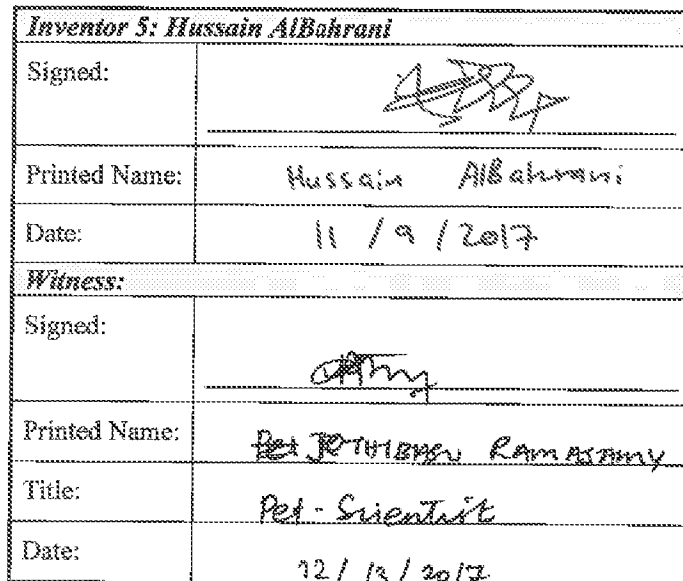 Inventor 5: Hussain AlBahrani
Signed:
Printed Name: Hussain AlBahrani
Date: 11 / 9 / 2017
Witness:
Signed:
Printed Name: RAMASAMY
Title: Pet - Scientist
Date: 12 / 13 / 2017